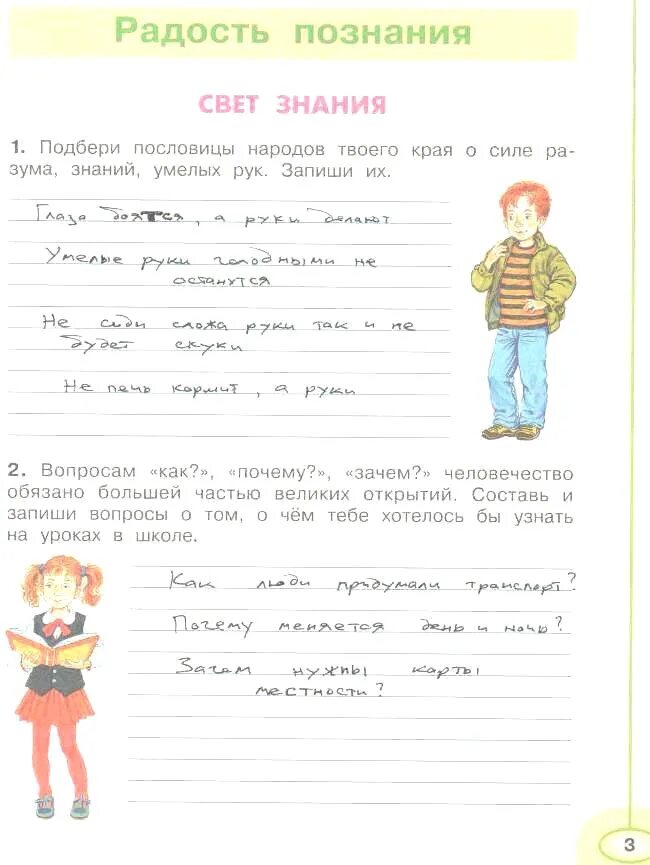 Радость познания
СВЕТ ЗНАНИЯ
1. Подбери пословицы народов твоего края о силе ра-
зума, знаний, умелых рук. Запиши их.
Глаза боятся, а руки делают
Умелые руки голодными не
останутся
Не сиди сложа руки так и не
будет скуки
Не печь кормит, а руки
2. Вопросам «как?», «почему?», «зачем?» человечество
обязано большей частью великих открытий. Составь и
запиши вопросы о том, о чём тебе хотелось бы узнать
на уроках в школе.
Как люди придумали транспорт?
Почему меняется день и ночь?
Зачем нужны карты
местности?
3